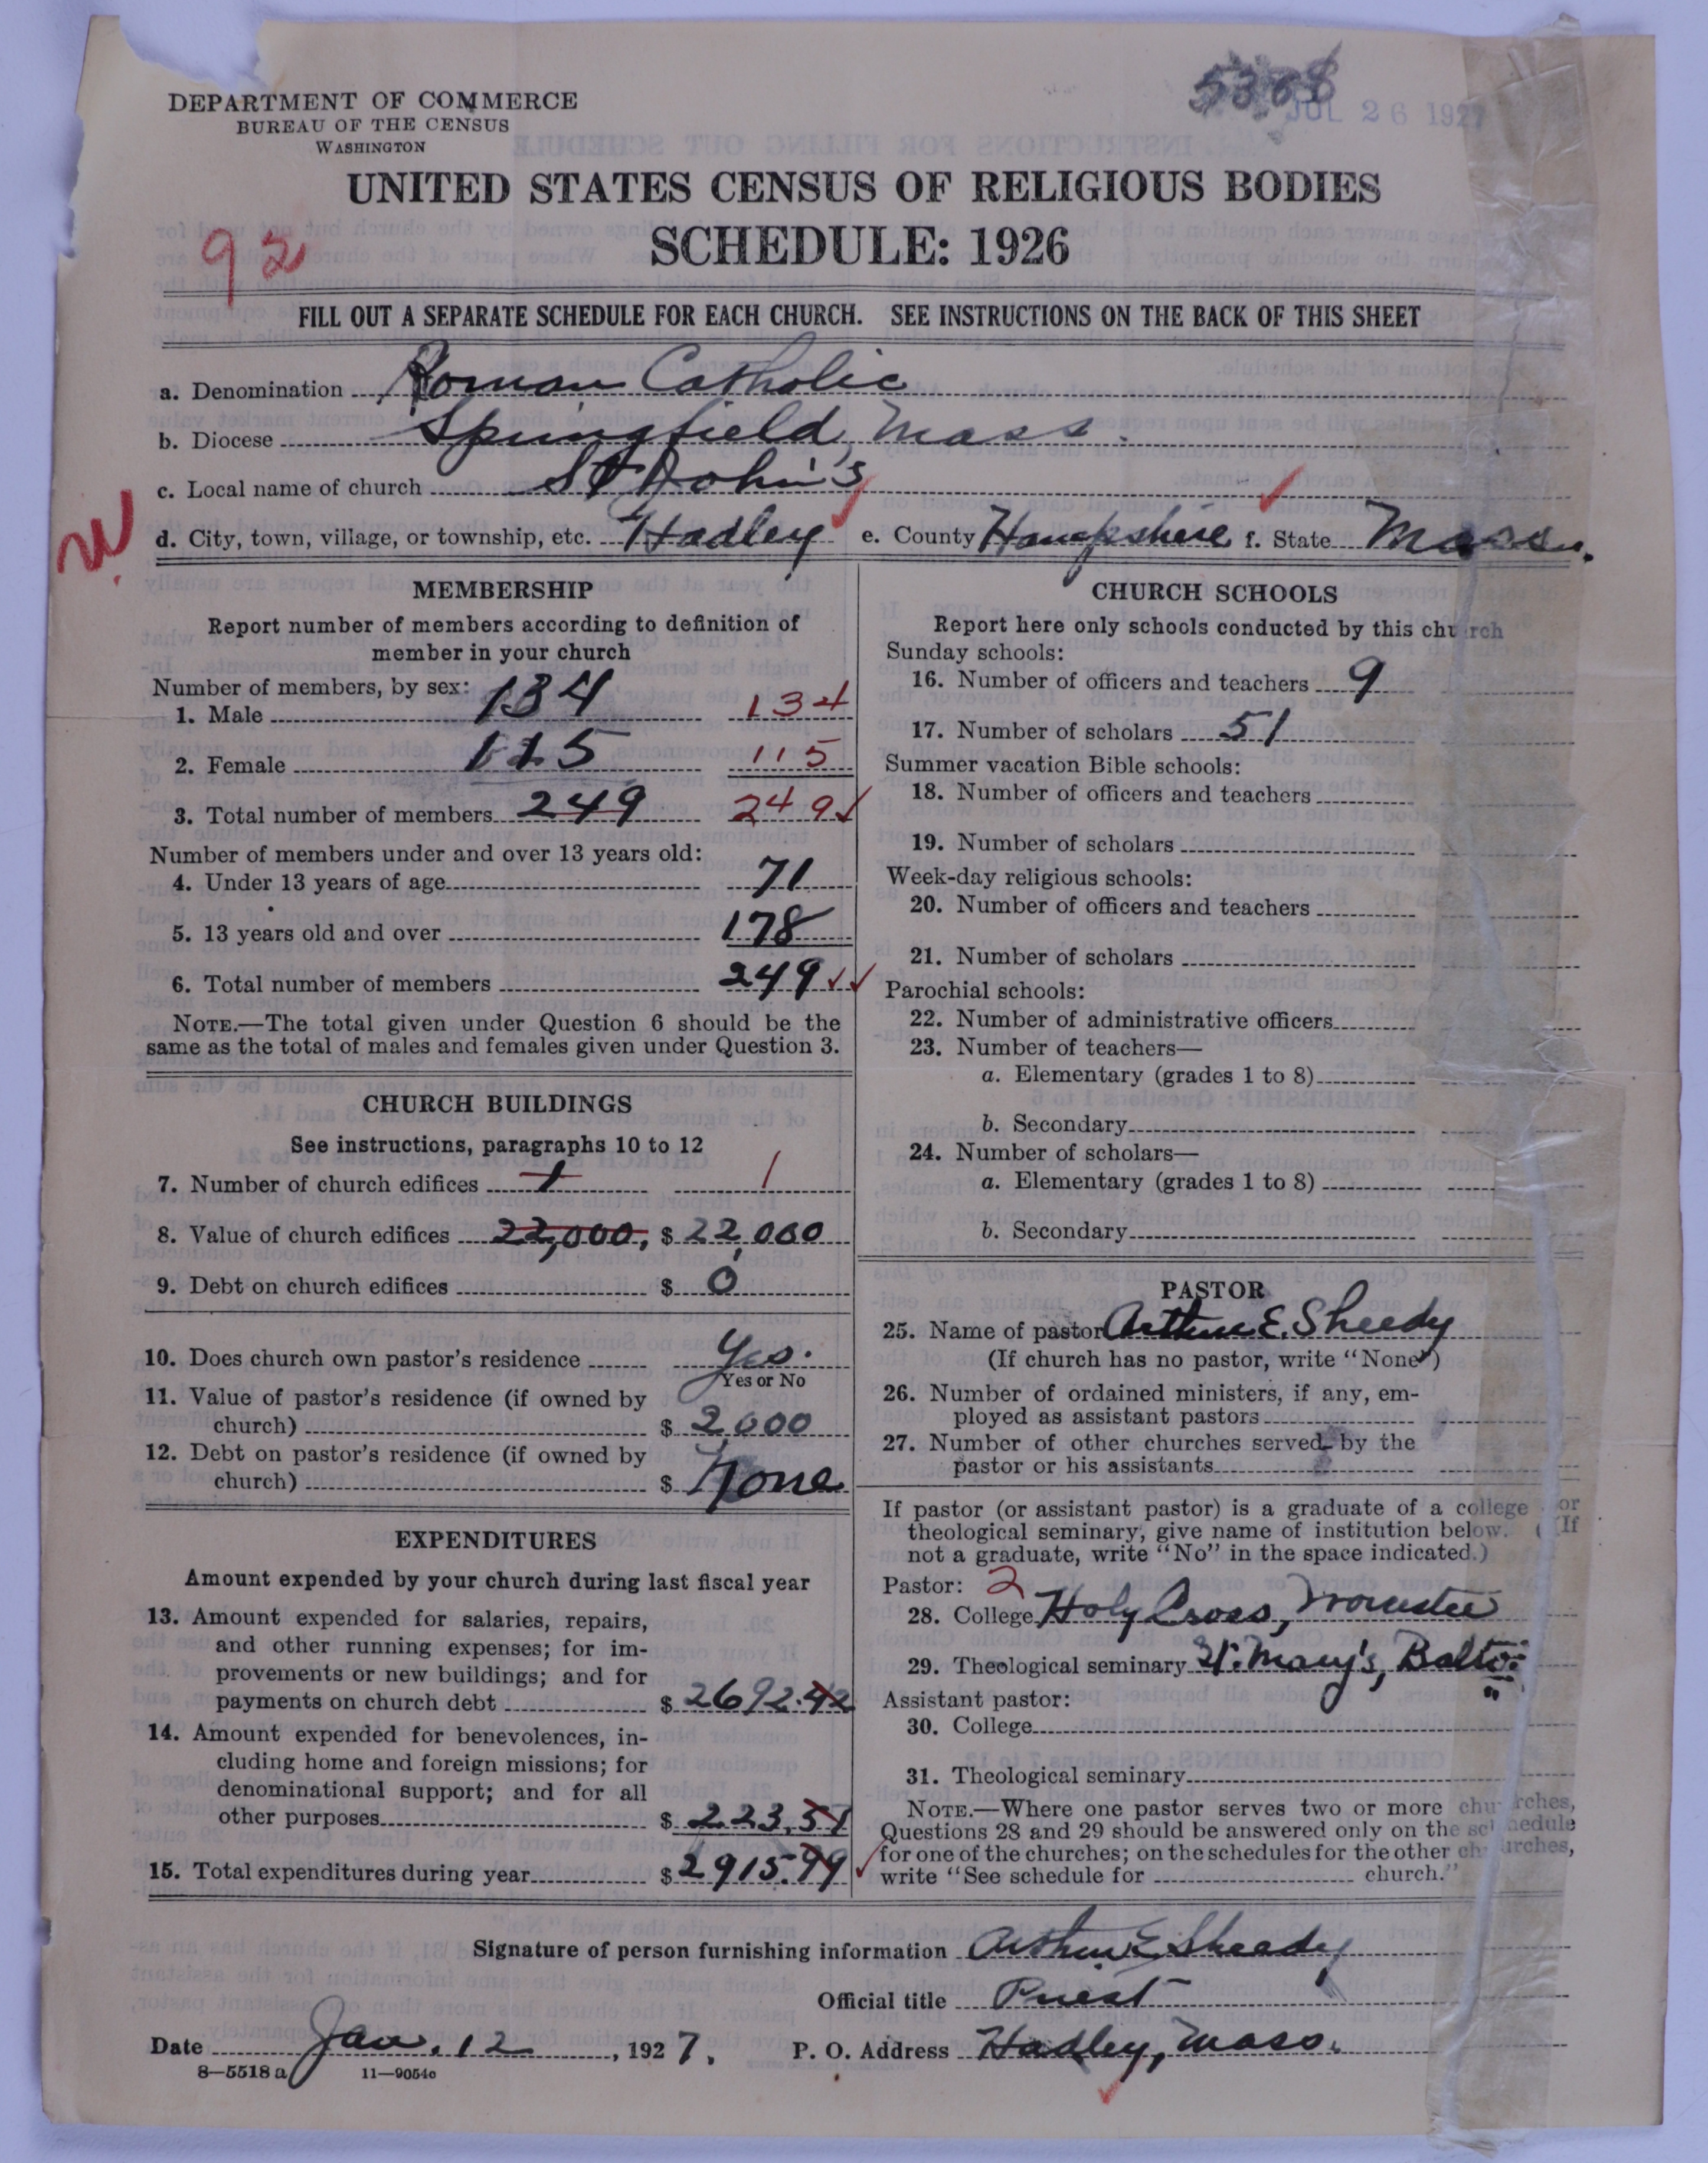 5368
JUL 26 1927
DEPARTMENT OF COMMERCE
BUREAU OF THE CENSUS
WASHINGTON
UNITED STATES CENSUS OF RELIGIOUS BODIES
SCHEDULE: 1926
92
FILL OUT A SEPARATE SCHEDULE FOR EACH CHURCH. SEE INSTRUCTIONS ON THE BACK OF THIS SHEET
a. Denomination Roman Catholic
b. Diocese Springfield, Mass.
c. Local name of church St John's
d. City, town, village, or township, etc. Hadley e. County Hampshire f. State Mass.
W
MEMBERSHIP
Report number of members according to definition of
member in your church
Number of members, by sex:
1. Male 134 134
2. Female 115 115
3. Total number of members 249 249
Number of members under and over 13 years old:
4. Under 13 years of age 71
5. 13 years old and over 178
6. Total number of members 249
NOTE.—The total given under Question 6 should be the
same as the total of males and females given under Question 3.
CHURCH BUILDINGS
See instructions, paragraphs 10 to 12
7. Number of church edifices 1 1
8. Value of church edifices 22,000, $ 22,000
9. Debt on church edifices $ 0
10. Does church own pastor's residence Yes.
Yes or No
11. Value of pastor's residence (if owned by
church) $ 2,000
12. Debt on pastor's residence (if owned by
church) $ None
EXPENDITURES
Amount expended by your church during last fiscal year
13. Amount expended for salaries, repairs,
and other running expenses; for im-
provements or new buildings; and for
payments on church debt $ 2692.42
14. Amount expended for benevolences, in-
cluding home and foreign missions; for
denominational support; and for all
other purposes $ 223.57
15. Total expenditures during year $ 2915.99
CHURCH SCHOOLS
Report here only schools conducted by this church
Sunday schools:
16. Number of officers and teachers 9
17. Number of scholars 51
Summer vacation Bible schools:
18. Number of officers and teachers
19. Number of scholars
Week-day religious schools:
20. Number of officers and teachers
21. Number of scholars
Parochial schools:
22. Number of administrative officers
23. Number of teachers—
a. Elementary (grades 1 to 8)
b. Secondary
24. Number of scholars—
a. Elementary (grades 1 to 8)
b. Secondary
PASTOR
25. Name of pastor Arthur E. Sheedy
(If church has no pastor, write "None")
26. Number of ordained ministers, if any, em-
ployed as assistant pastors
27. Number of other churches served by the
pastor or his assistants
If pastor (or assistant pastor) is a graduate of a college or
theological seminary, give name of institution below. (If
not a graduate, write "No" in the space indicated.)
Pastor: 2
28. College Holy Cross, Worcester
29. Theological seminary St. Mary's, Balto.
Assistant pastor:
30. College
31. Theological seminary
NOTE.—Where one pastor serves two or more churches,
Questions 28 and 29 should be answered only on the schedule
for one of the churches; on the schedules for the other churches,
write "See schedule for church."
Signature of person furnishing information Arthur E Sheedy
Official title Priest
Date Jan. 12, 1927. P. O. Address Hadley, Mass.
8—5518 a 11—9054c